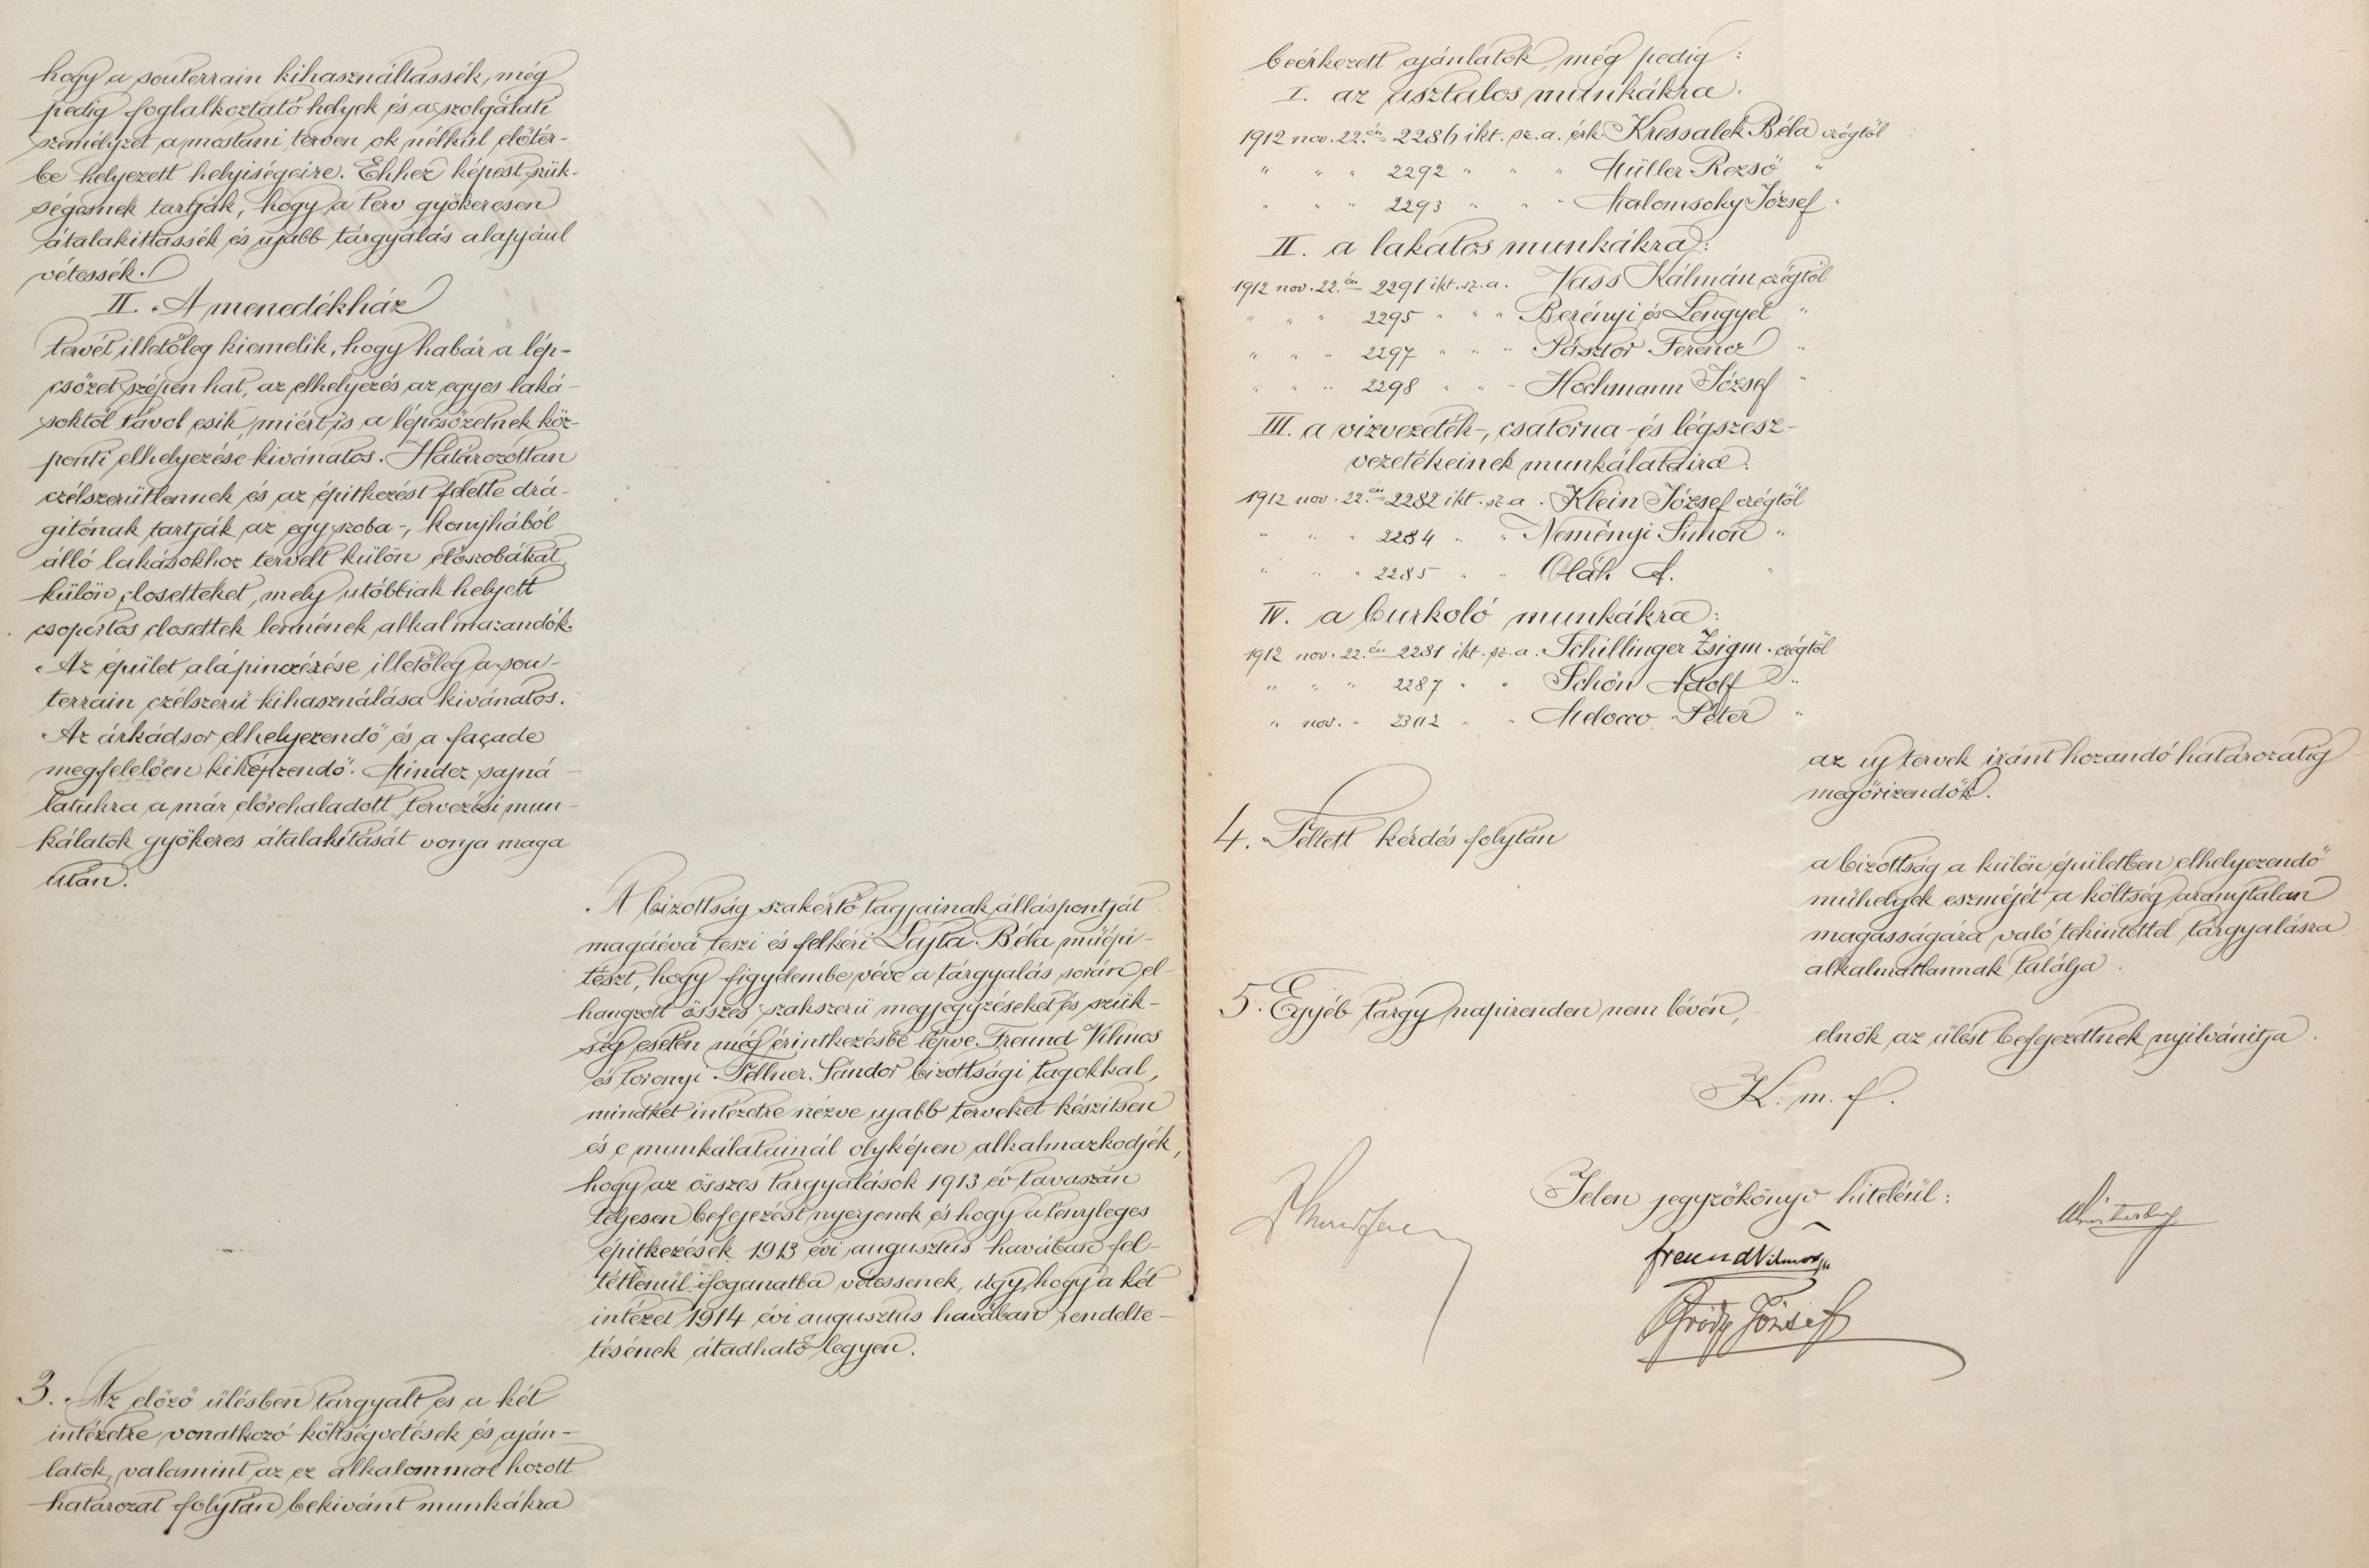 hogy a souterrain kihasználtassék, még
pedig foglalkoztató helyek és a szolgálati
személyzet a mostani terven ok nélkül előtér-
be helyezett helyiségeire. Ehhez képest szük-
ségesnek tartják, hogy a terv gyökeresen
átalakittassék és ujabb tárgyalás alapjául
vétessék.
II. A menedékház
tervét illetőleg kiemelik, hogy habár a lép-
csőzet szépen hat, az elhelyezés az egyes laká-
soktól távol esik, miért is a lépcsőzetnek köz-
ponti elhelyezése kivánatos. Határozottan
czélszerütlennek és az épitkezést felette drá-
gitónak tartják az egy szoba-, konyhából
álló lakásokhoz tervelt külön előszobákat,
külön closetteket, mely utóbbiak helyett
csoportos closettek lennének alkalmazandók.
Az épület alápinczézése illetőleg a sou-
terrain czélszerü kihasználása kivánatos.
Az árkádsor elhelyezendő és a façade
megfelelően kiképzendő. Mindez sajná-
latukra a már előrehaladott tervezési mun-
kálatok gyökeres átalakitását vonja maga
után.
A bizottság szakértő tagjainak álláspontját
magáévá teszi és felkéri Lajta Béla müépi-
tészt, hogy figyelembe véve a tárgyalás során el-
hangzott összes szakszerü megjegyzéseket és szük-
ség esetén még érintkezésbe lépve Freund Vilmos
és toronyi Fellner Sándor bizottsági tagokkal,
mindkét intézetre nézve ujabb terveket készitsen
és e munkálatainál olyképen alkalmazkodjék,
hogy az összes tárgyalások 1913 év tavaszán
teljesen befejezést nyerjenek és hogy a tényleges
épitkezések 1913 évi augusztus havában fel-
tétlenül foganatba vétessenek, úgy, hogy a két
intézet 1914 évi augusztus havában rendelte-
tésének átadható legyen.
3. Az előző ülésben tárgyalt és a két
intézetre vonatkozó költségvetések és aján-
latok, valamint az ez alkalommal hozott
határozat folytán bekivánt munkákra
beérkezett ajánlatok, még pedig:
I. az asztalos munkákra.
1912 nov. 22.én 2286 ikt. sz. a. érk. Kressalek Béla czégtől
" " " 2292 " " " Müller Rezső "
" " " 2293 " " " Malomsoky József "
II. a lakatos munkákra:
1912 nov. 22.én 2291 ikt. sz. a. Vass Kálmán czégtől
" " " 2295 " " " Berényi és Lengyel "
" " " 2297 " " " Pásztor Ferencz "
" " " 2298 " " " Hochmann József "
III. a vizvezeték-, csatorna- és légszesz-
vezetékeinek munkálataira:
1912 nov. 22.én 2282 ikt. sz. a. Klein József czégtől
" " " 2284 " " Neményi Simon "
" " " 2285 " " Oláh A. "
IV. a burkoló munkákra:
1912 nov. 22.én 2281 ikt. sz. a. Schillinger Zsigm. czégtől
" " " 2287 " " Schön Adolf "
" nov. " 2302 " " Melocco Péter "
az uj tervek iránt hozandó határozatig
megőrizendők.
4. Feltett kérdés folytán
a bizottság a külön épületben elhelyezendő
műhelyek eszméjét a költség aránytalan
magasságára való tekintettel tárgyalásra
alkalmatlannak találja.
5. Egyéb tárgy napirenden nem lévén,
elnök az ülést befejezettnek nyilvánitja.
K. m. f.
Jelen jegyzőkönyv hiteléül:
Freund Vilmos
Bródy József